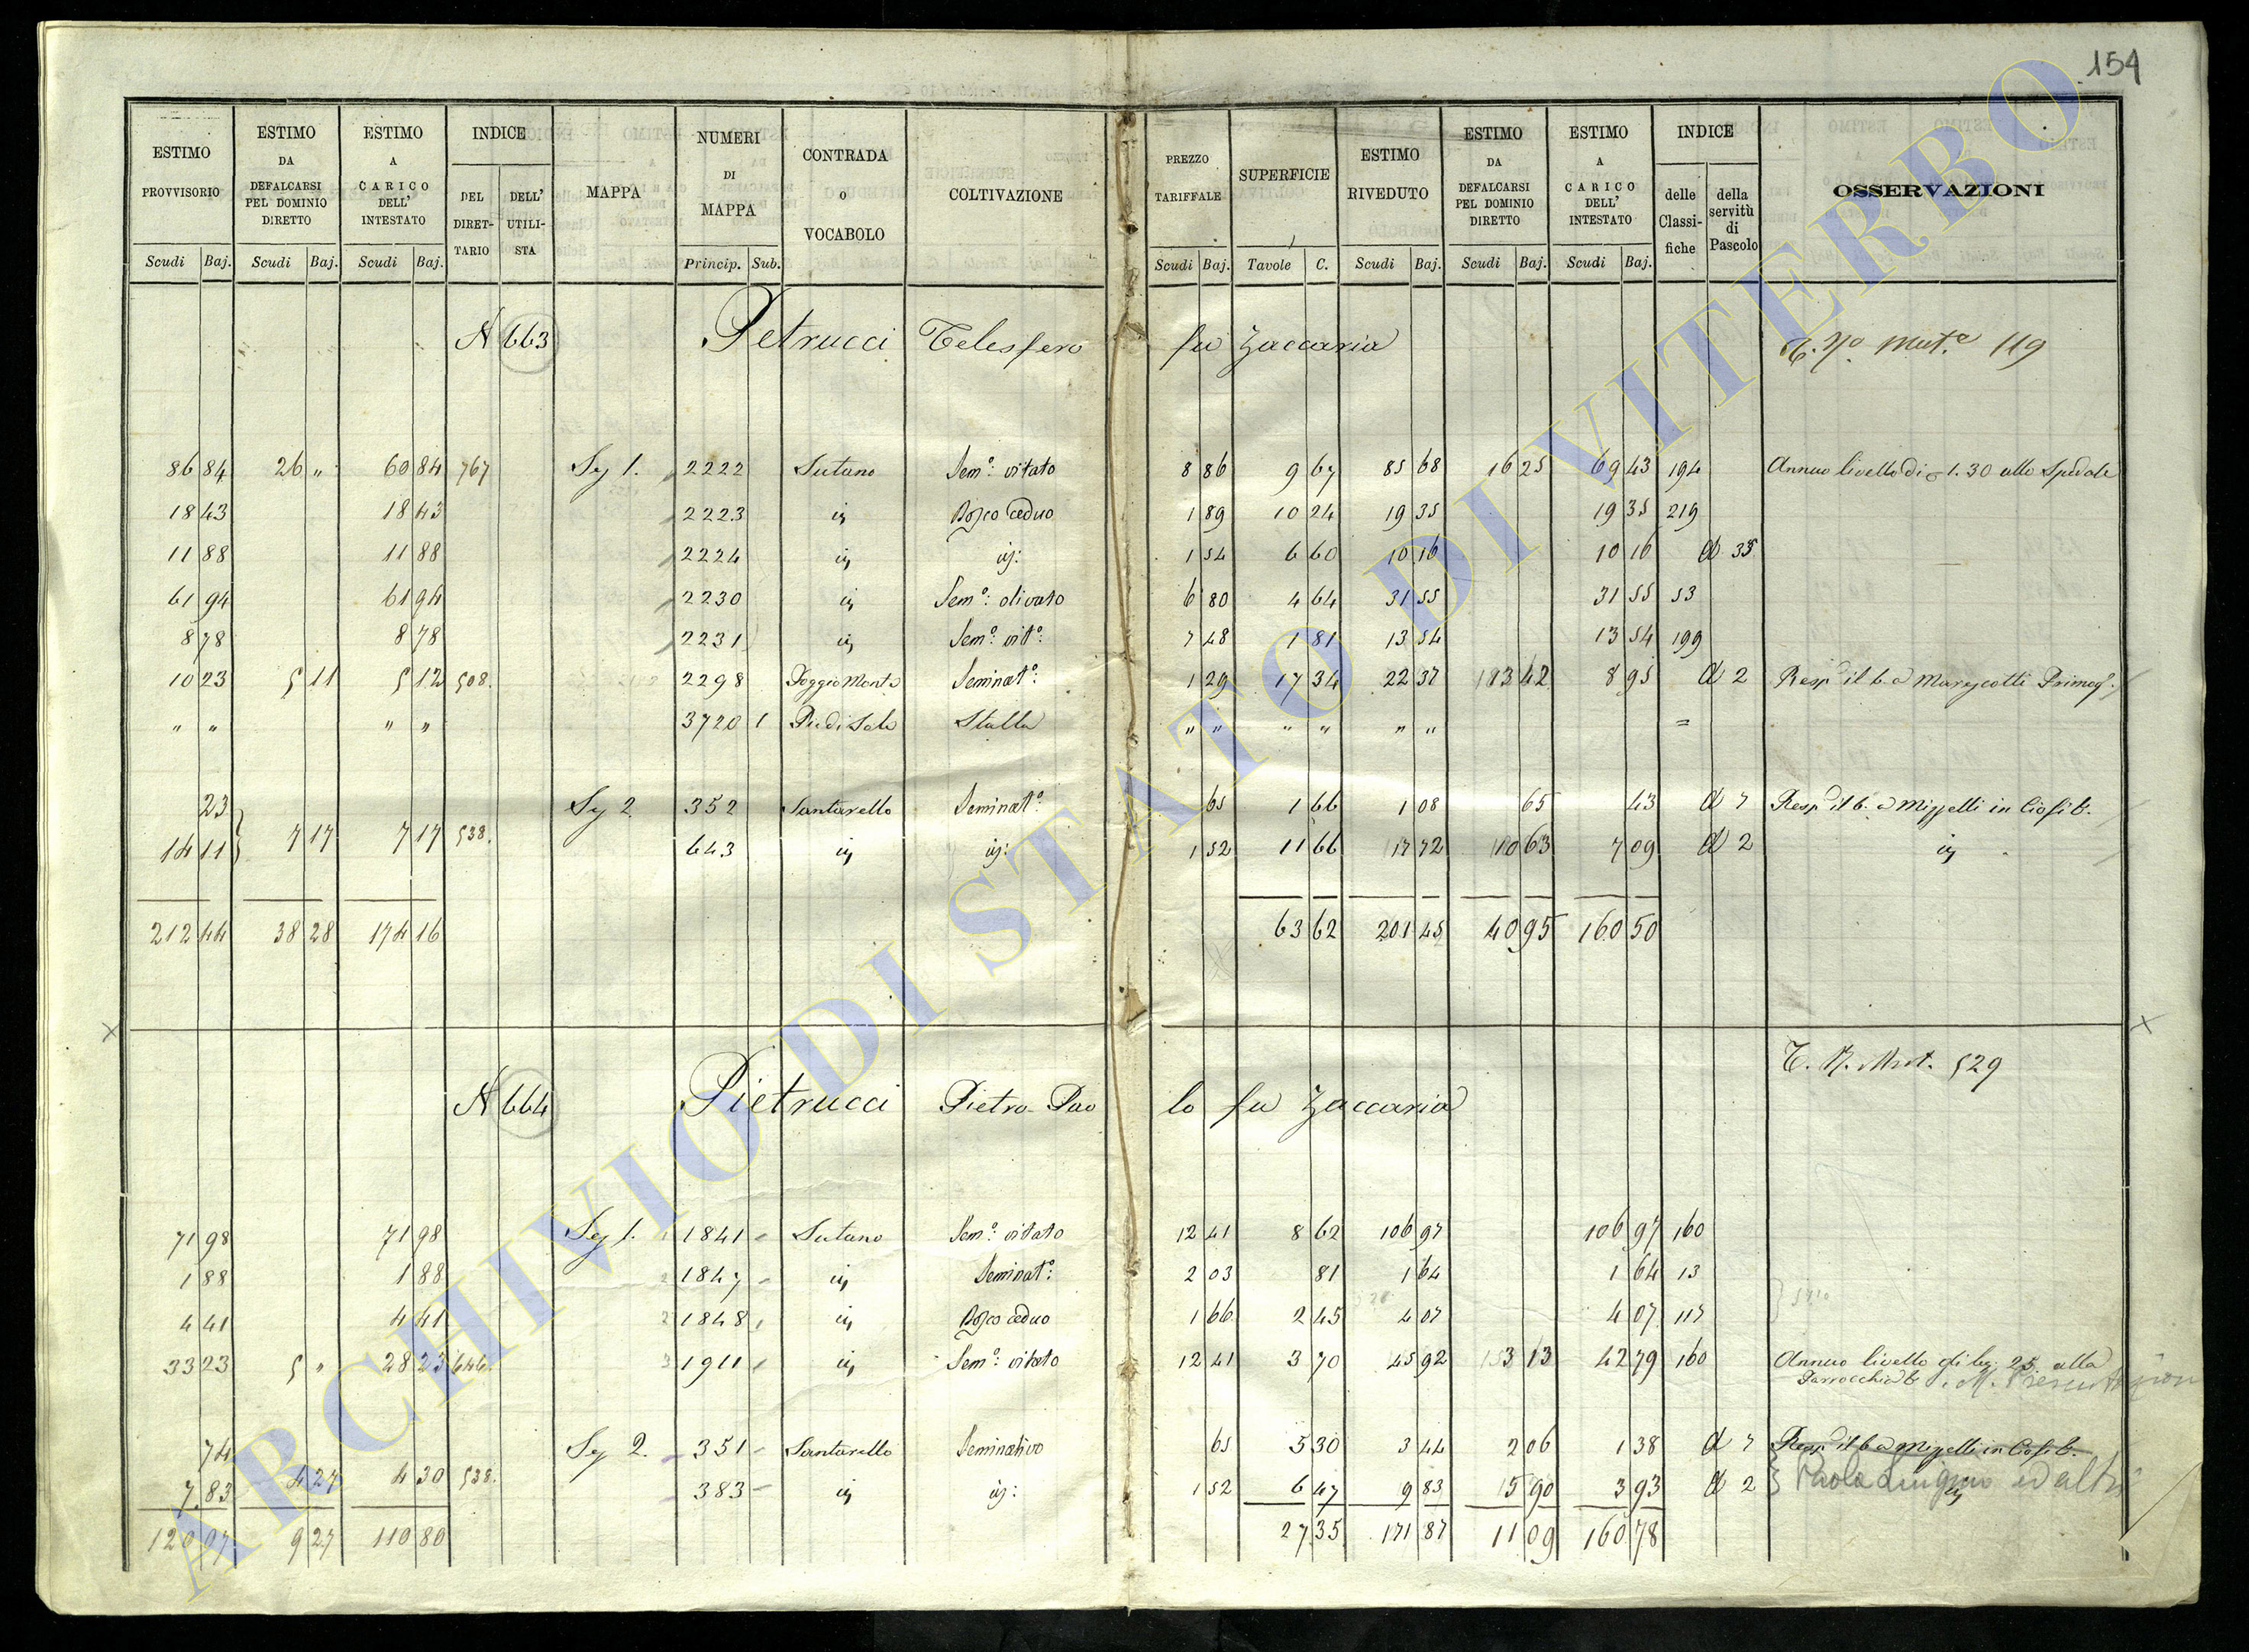 154
ESTIMO PROVVISORIO Scudi Baj.
ESTIMO DA DEFALCARSI PEL DOMINIO DIRETTO Scudi Baj.
ESTIMO A CARICO DELL' INTESTATO Scudi Baj.
INDICE DEL DIRET-TARIO DELL' UTILI-STA
MAPPA
NUMERI DI MAPPA Princip. Sub.
CONTRADA O VOCABOLO
COLTIVAZIONE
PREZZO TARIFFALE Scudi Baj.
SUPERFICIE Tavole C.
ESTIMO RIVEDUTO Scudi Baj.
ESTIMO DA DEFALCARSI PEL DOMINIO DIRETTO Scudi Baj.
ESTIMO A CARICO DELL' INTESTATO Scudi Baj.
INDICE delle Classi-fiche della servitù di Pascolo
OSSERVAZIONI
N 663 Petrucci Telesforo fu Zaccaria 119
86 84 26 " 60 84 767 Sez 1. 2222 Sutano Sem.º vitato 8 86 9 67 85 68 16 25 69 43 194 Annuo livello di 1.30 allo Spedale
18 43 18 43 2223 id Bosco ceduo 1 89 10 24 19 35 19 35 219
11 88 11 88 2224 id id: 1 54 6 60 10 16 10 16 d 35
61 94 61 94 2230 id Sem.º olivato 6 80 4 64 31 55 31 55 53
8 78 8 78 2231 id Sem.º vit.º 7 48 1 81 13 54 13 54 199
10 23 5 11 5 12 508. 2298 Poggio Monte Seminat.º 1 29 17 34 22 37 13 42 8 95 d 2 Resp. il b. a Marescotti Primog.
" " " " 3720 1 Piedi Sole Stalla " " " " " " =
23 Sez 2 352 Santarello Seminat.º 65 1 66 1 08 65 43 d 7 Resp. il b. a Mizzelli in Ciofi b.
14 11 7 17 7 17 538. 643 id id: 1 52 11 66 17 72 10 63 7 09 d 2 id
212 44 38 28 174 16 63 62 201 45 40 95 160 50
529
N 664 Pietrucci Pietro Pao lo fu Zaccaria
71 98 71 98 Sez 1. 1841 Sutano Sem.º vitato 12 41 8 62 106 97 106 97 160
1 88 1 88 1847 id Seminat.º 2 03 81 1 64 1 64 13
4 41 4 41 1848 id Bosco ceduo 1 66 2 45 4 07 4 07 117
33 23 5 " 28 23 646. 1911 id Sem.º vitato 12 41 3 70 45 92 3 13 42 79 160 Annuo livello di baj. 25. alla
Parrocchia
74 Sez 2. 351 Santarello Seminativo 65 5 30 3 44 2 06 1 38 d 7 Resp. il b. a Mizzelli in Ciofi b.
7 83 4 27 4 30 538. 383 id id: 1 52 6 47 9 83 5 90 3 93 d 2 Paola ed altri
120 07 9 27 110 80 27 35 171 87 11 09 160 78
ARCHIVIO DI STATO DI VITERBO